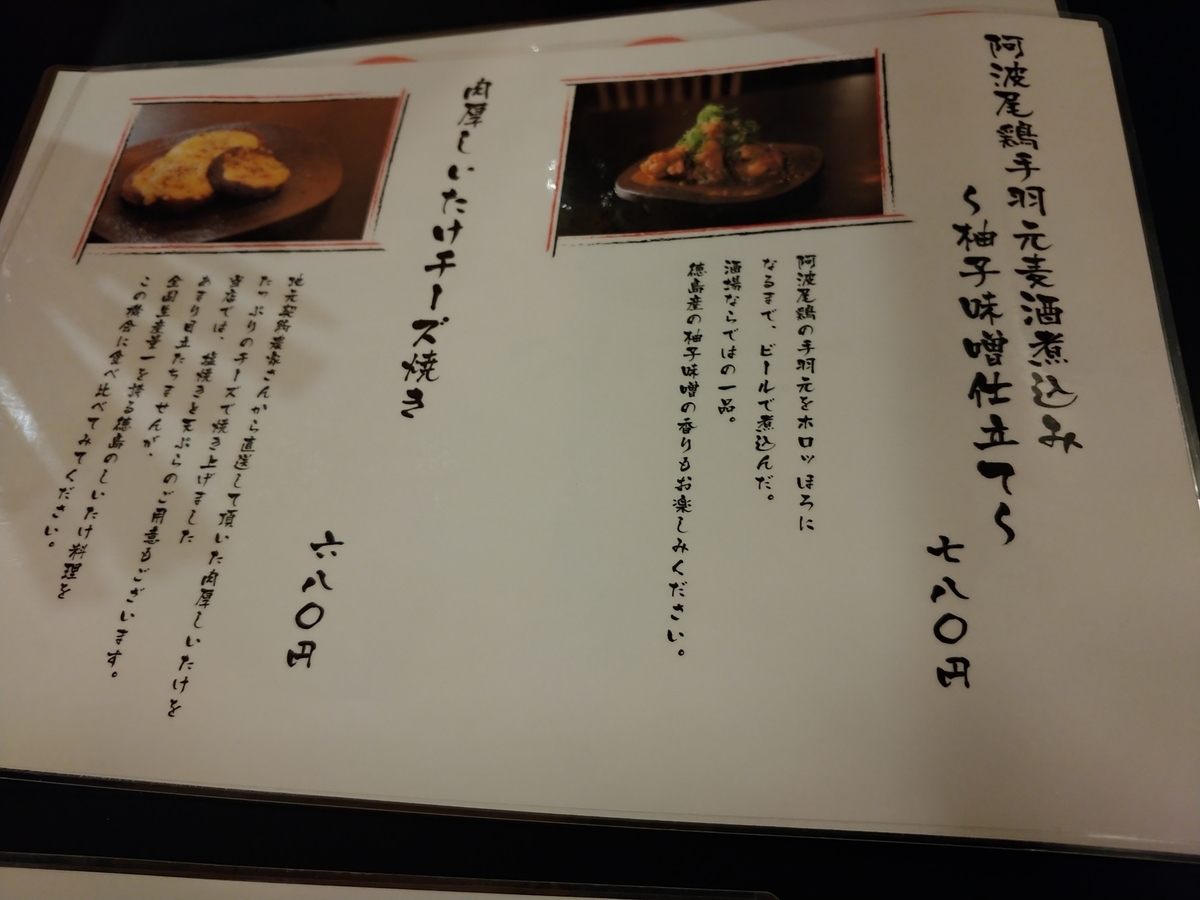 阿波尾鶏手羽元麦酒煮込み
～柚子味噌仕立て～
七八〇円
阿波尾鶏の手羽元をホロッほろに
なるまで、ビールで煮込んだ。
酒場ならではの一品。
徳島産の柚子味噌の香りもお楽しみください。
肉厚しいたけチーズ焼き
六八〇円
地元契約農家さんから直送して頂いた肉厚しいたけを
たっぷりのチーズで焼き上げました
当店では、塩焼きと天ぷらのご用意もございます。
あまり目立たちませんが、
全国生産量一を誇る徳島のしいたけ料理を
この機会に食べ比べてみてください。